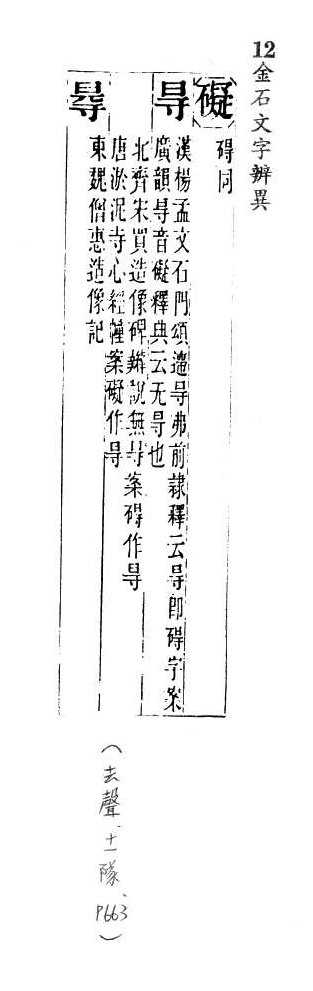 12金石文字辨異
礙
碍同
㝵
漢楊孟文石門頌遰㝵弗前隸釋云㝵即碍字案
廣韻㝵音礙釋典云无㝵也
北齊宋買造像碑辨說無㝵案碍作㝵
唐淤泥寺心經幢案礙作㝵
東魏僧惠造像記
（去聲、十一隊、P663）